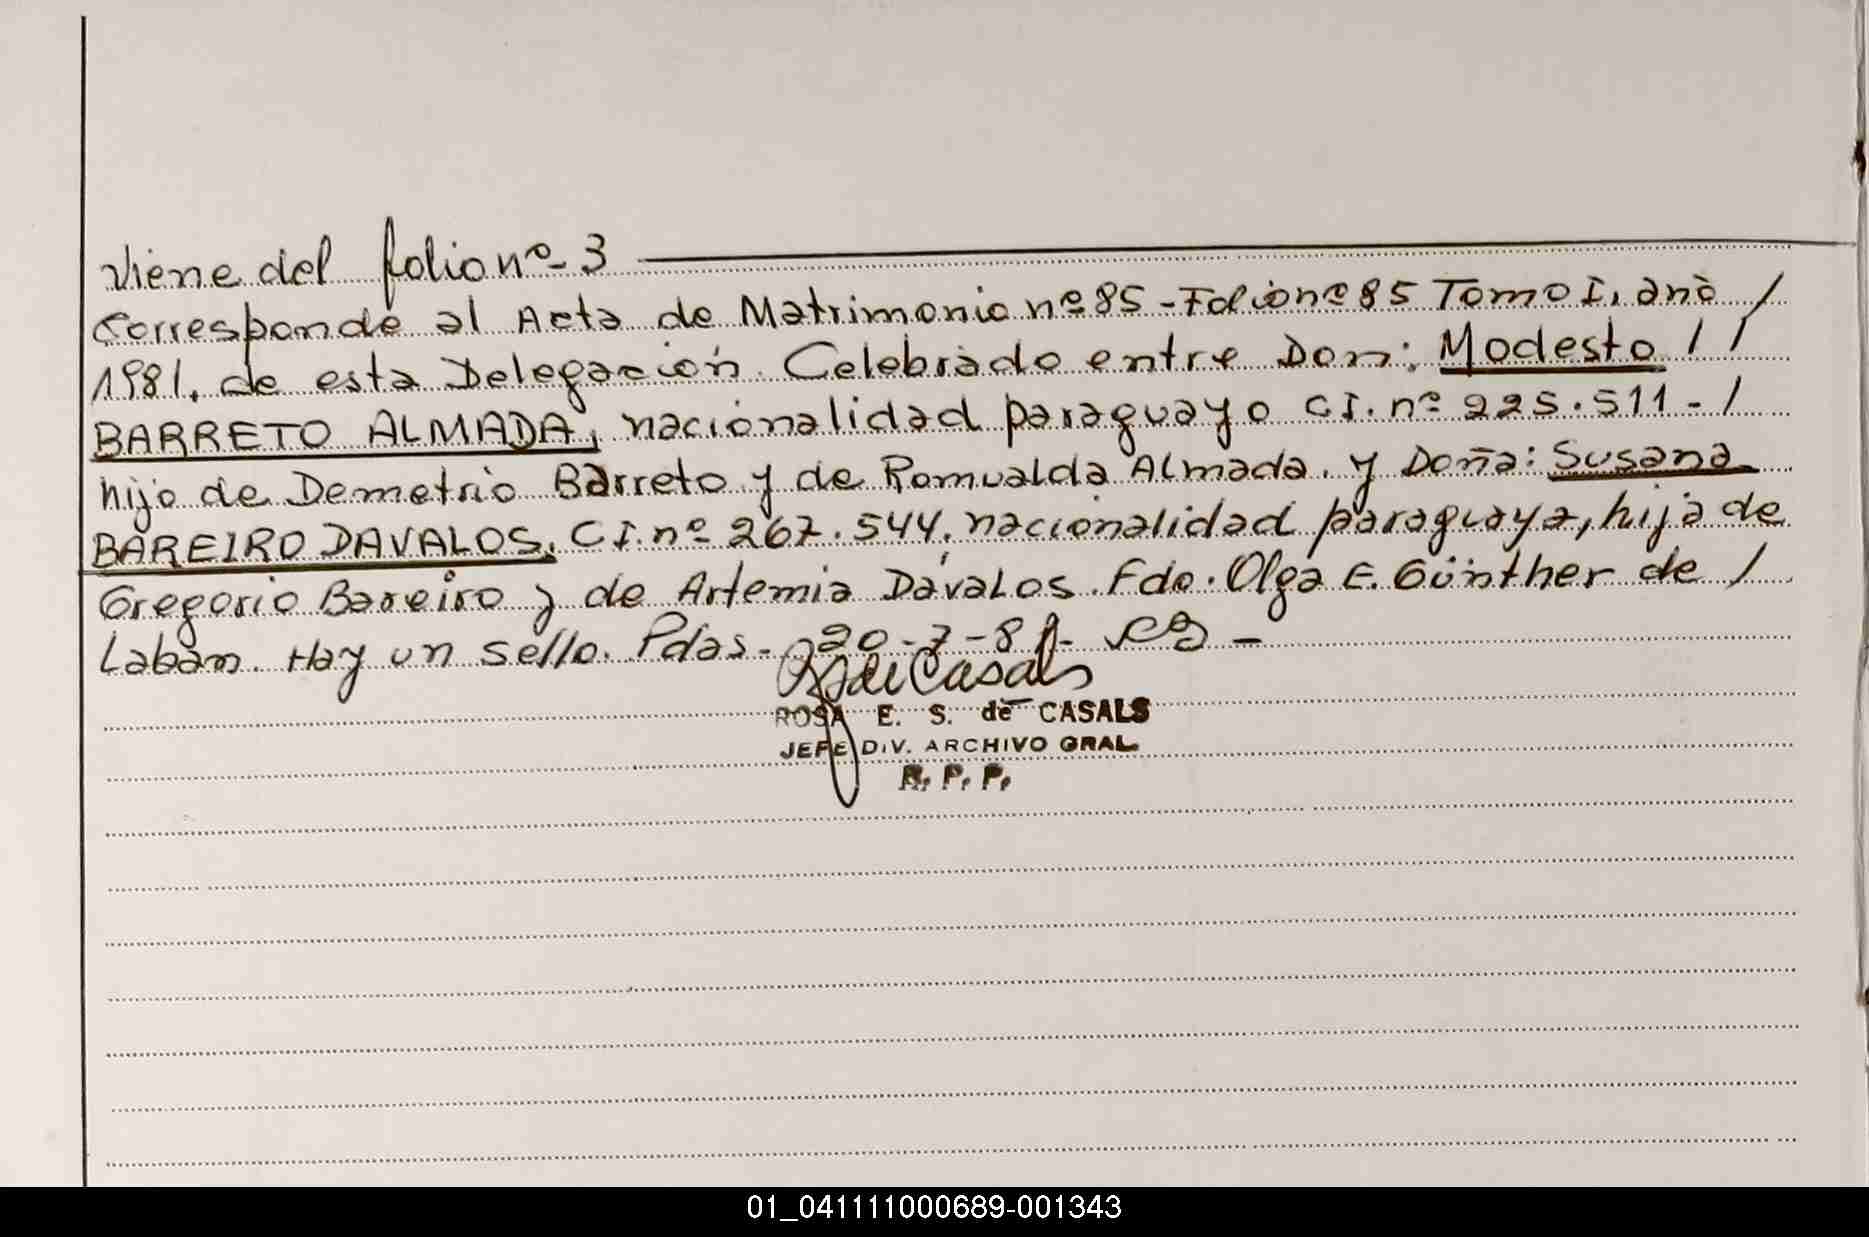 Viene del folio nº 3
Corresponde al Acta de Matrimonio nº 85 - Folio nº 85 Tomo I, año /
1981, de esta Delegación. Celebrado entre Don: Modesto / /
BARRETO ALMADA, nacionalidad paraguayo C.I. nº 225.511 - /
hijo de Demetrio Barreto y de Romualda Almada. y Doña: Susana
BAREIRO DAVALOS. C.I. nº 267.544. nacionalidad paraguaya, hija de
Gregorio Bareiro y de Artemia Dávalos. Fdo. Olga E. Günther de /
Labán. Hay un sello. Pdas. 20-7-81.
ROSA E. S. de CASALS
JEFE DIV. ARCHIVO GRAL.
R. P. P.
01_041111000689-001343